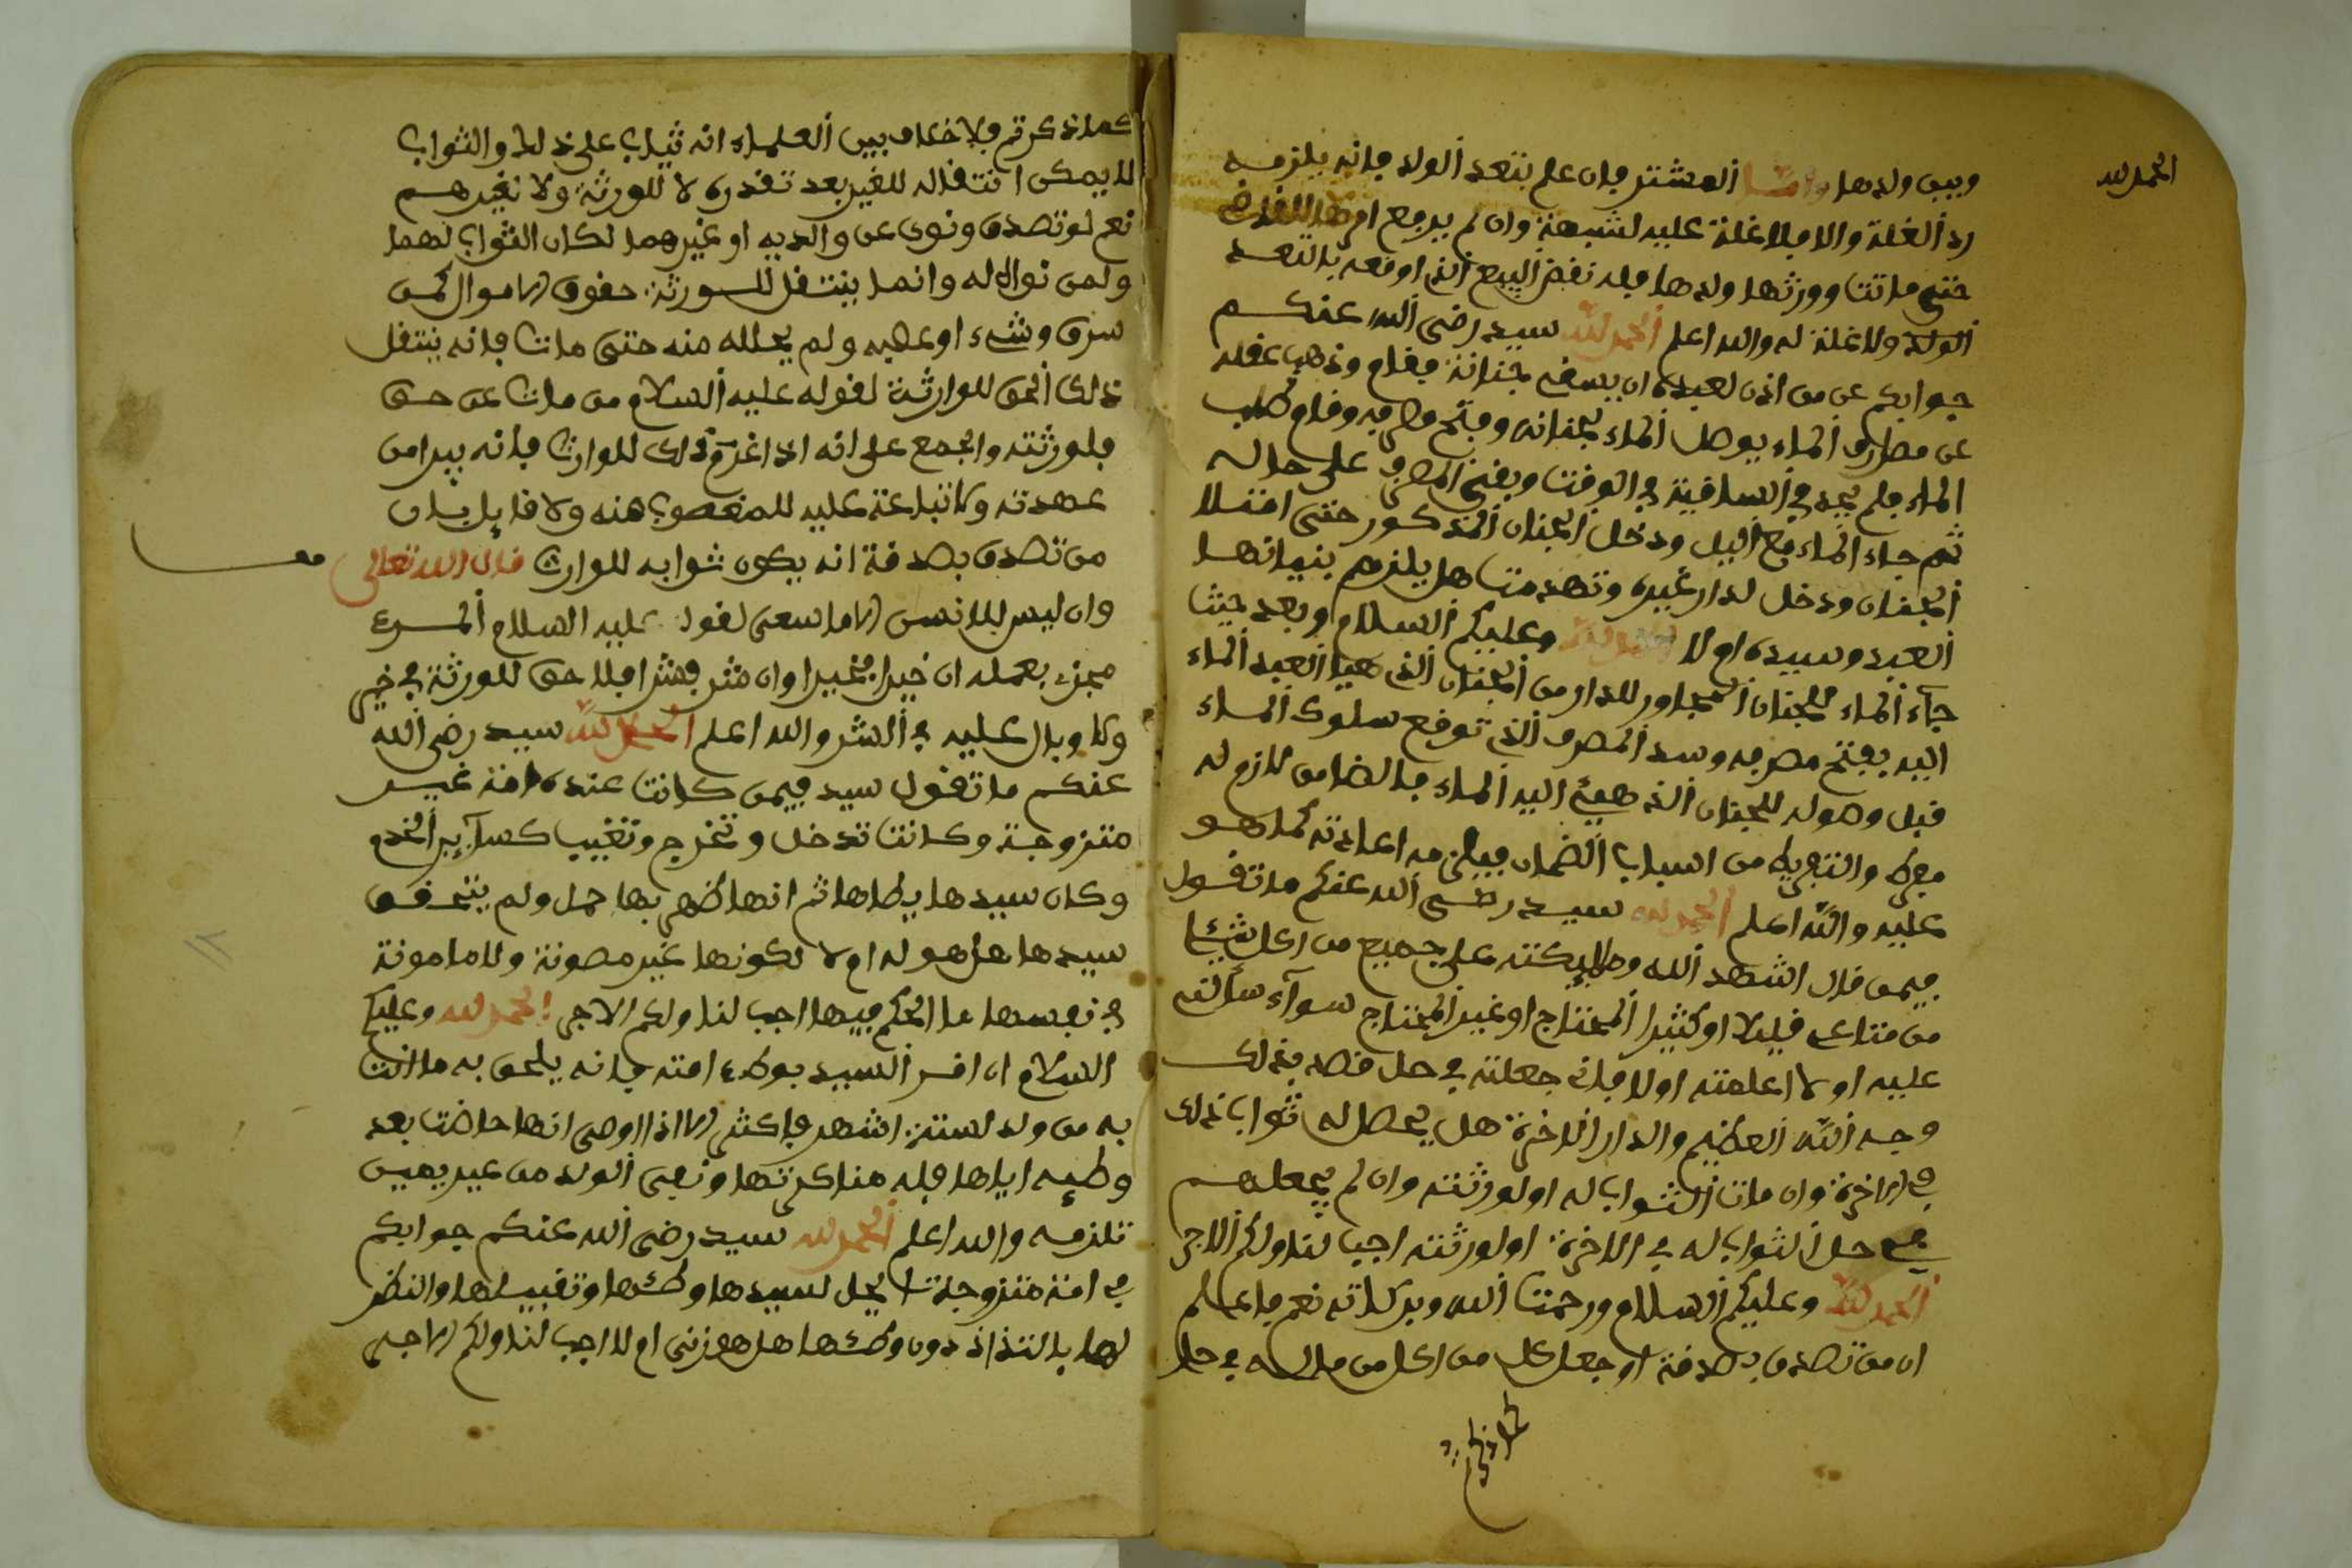 الحمد لله
وبين ولدها وأما المشتر فإن علم بتعد الولد فإنه يلزمه
رد الغلة والا فلا غلة عليه لشبهة وان لم يرجع
حتى ماتت وورثها ولدها فله نقض البيع الذي اوقعه بالتعد
الولد ولا غلة له والله اعلم الحمد لله سيد رضي الله عنكم
جوابكم عن من اذن لعبده ان يسقي جنانة فقام وذهب عقله
عن مصارف الماء يوصل الماء لجنانه وفتح مصرفه وقام وطلب
الماء فلم يجده في الساقية في الوقت وبقي المصرف على حاله
ثم جاء الماء مع اليل ودخل الجنان المذكور حتى امتلا
الجنان ودخل لدار غيره وتهدمت هل يلزم بنيانها
العبد وسيده ام لا الحمد لله وعليكم السلام وبعد حيث
جاء الماء للجنان المجاور للدار من الجنان الذي هيا العبد الماء
اليه بفتح مصرفه وسد المصرف الذي توقع سلوك الماء
قبل وصوله للجنان الذي هيئ اليه الماء فالضمان لازم له
مفرط والتفريط من اسباب الضمان فيلزمه اعادته كما هو
عليه والله اعلم الحمد لله سيد رضي الله عنكم ما تقول
فيمن قال اشهد الله وملايكته على جميع من اكل شيئا
من متاعي قليلا او كثيرا المحتاج او غير المحتاج سوآء سألني
عليه او لا اعلمته اولا فاني جعلته في حل قصد بذلك
وجه الله العظيم والدار الاخرة هل يحصل له ثواب ذلك
في الاخرة وان مات الثواب له او لورثته وان لم يجعلهم
في حل الثواب له في الاخرة او لورثته اجب لنا ولكم الاجر
الحمد لله وعليكم السلام ورحمت الله وبركاته نعم فاعلم
ان من تصدق بصدقة او جعل كل من اكل من ماله في حل
كما ذكرتم
كما ذكرتم فلا خلاف بين العلماء انه يثاب على ذلك والثواب
لا يمكن انتقاله للغير بعد تقدره لا للورثة ولا لغيرهم
نعم لو تصدق ونوى عن والديه او غيرهما لكان الثواب لهما
ولمن نواه له وانما ينتقل للورثة حقوق الاموال كمن
سرق وشيء او غصبه ولم يحلله منه حتى مات فإنه ينتقل
ذلك الحق للوارثة لقوله عليه السلام من مات عن حق
فلورثته واجمع على انه اذا غرم ذلك للوارث فإنه يبرا من
عهدته ولا تباعة عليه للمغصوب منه ولا قايل بان
من تصدق بصدقة انه يكون ثوابه للوارث قال الله تعالى
وان ليس للانسن الا ما سعى لقوله عليه السلام المرء
مجزء بعمله ان خيرا فخيرا وان شر فشرا فلا حق للورثة في خير
ولا وبال عليه في الشر والله اعلم الحمد لله سيد رضي الله
عنكم ما تقول سيد فيمن كانت عنده امة غير
متزوجة وكانت تدخل وتخرج وتغيب كسآير الخدم
وكان سيدها يطاها ثم انها ظهر بها حمل ولم يتحقق
سيدها هل هو له ام لا لكونها غير مصونة ولا مامونة
في نفسها ما الحكم فيها اجب لنا ولكم الاجر الحمد لله وعليكم
السلام ان اقر السيد بوطء امته فإنه يلحق به ما اتت
به من ولد لستة اشهر فاكثر الا اذا اوصى انها حاضت بعد
وطيه اياها فله مناكرتها ونفى الولد من غير يمين
تلزمه والله اعلم الحمد لله سيد رضي الله عنكم جوابكم
في امة متزوجة ايحل لسيدها وطئها وتقبيلها والنظر
لها بالتذاذ دون وطئها هل هو زنى ام لا اجب لنا ولكم الاجر